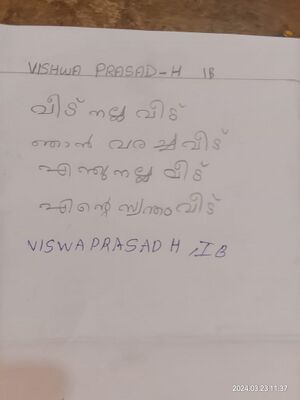 VISHWA PRASAD-H IB
വീട് നല്ല വീട്
ഞാൻ വരച്ച വീട്
എന്തു നല്ല വീട്
എന്റെ സ്വന്തം വീട്
VISWAPRASAD H , I B
2024.03.23 11:37